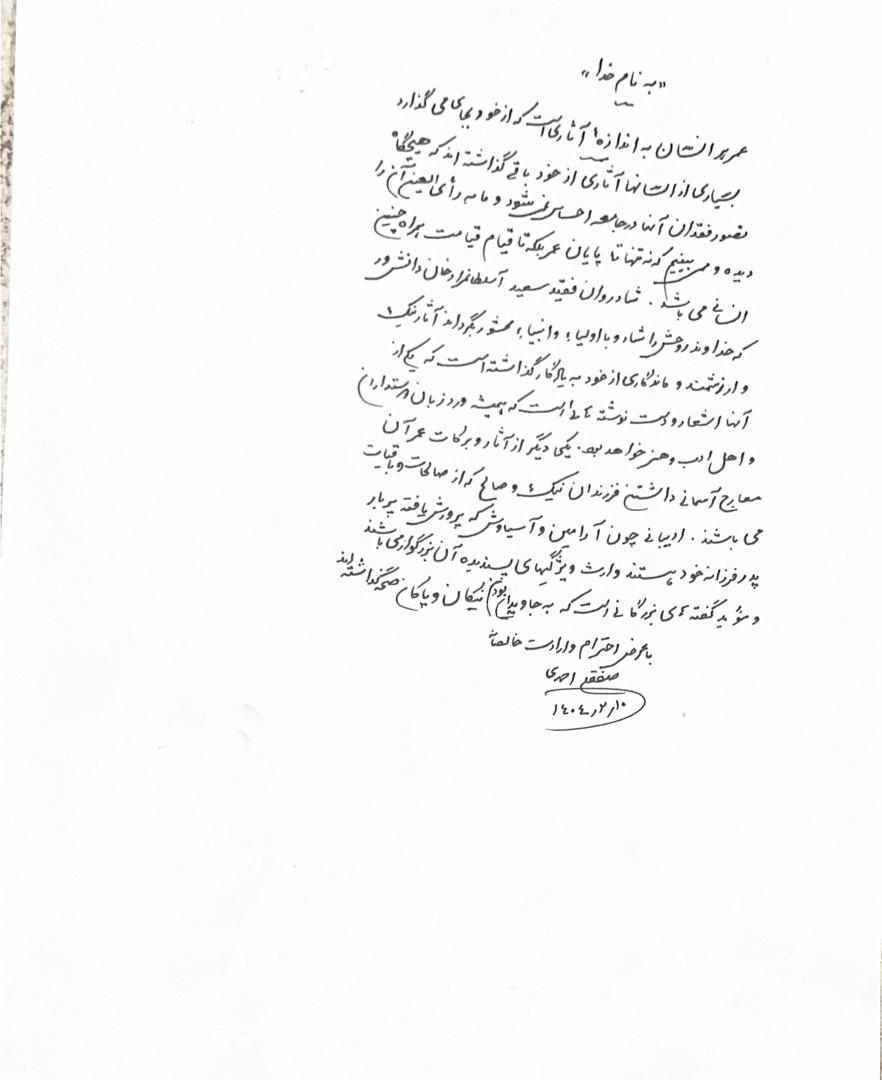 «به نام خدا»
عمر هر انسان به اندازهٔ آثاری است که از خود بجای می گذارد
بسیاری از انسانها آثاری از خود باقی گذاشته اند که هیچگاه
تصور فقدان آنها در جامعه احساس نمی شود و ما به رأی العین آن را
دیده و می بینیم که نه تنها تا پایان عمر بلکه تا قیام قیامت همراه چنین
انسانی می باشد. شادروان فقید سعید آسلطانمرادخان دانشور
که خداوند روحش را شاد و با اولیاء و انبیاء محشور بگرداند آثار نیک
و ارزشمند و ماندگاری از خود به یادگار گذاشته است که یکی از
آنها اشعار و دست نوشته هائی است که همیشه ورد زبان دوستداران
و اهل ادب و هنر خواهد بود. یکی دیگر از آثار و برکات عمر آن
معارج آسمانی داشتن فرزندان نیک و صالحی که از صالحات و باقیات
می باشند. ادیبانی چون آرامین و آسیاوش که پرورش یافته پربار
پدر فرزانه خود هستند وارث ویژگیهای پسندیده آن بزرگوار می باشند
و مؤید گفته های بزرگانی است که به جاویدان بودن نیکان و پاکان صحه گذاشته اند
با عرض احترام و ارادت خالصانه
احمدی
۱۴۰۴ر۲ر۱۰